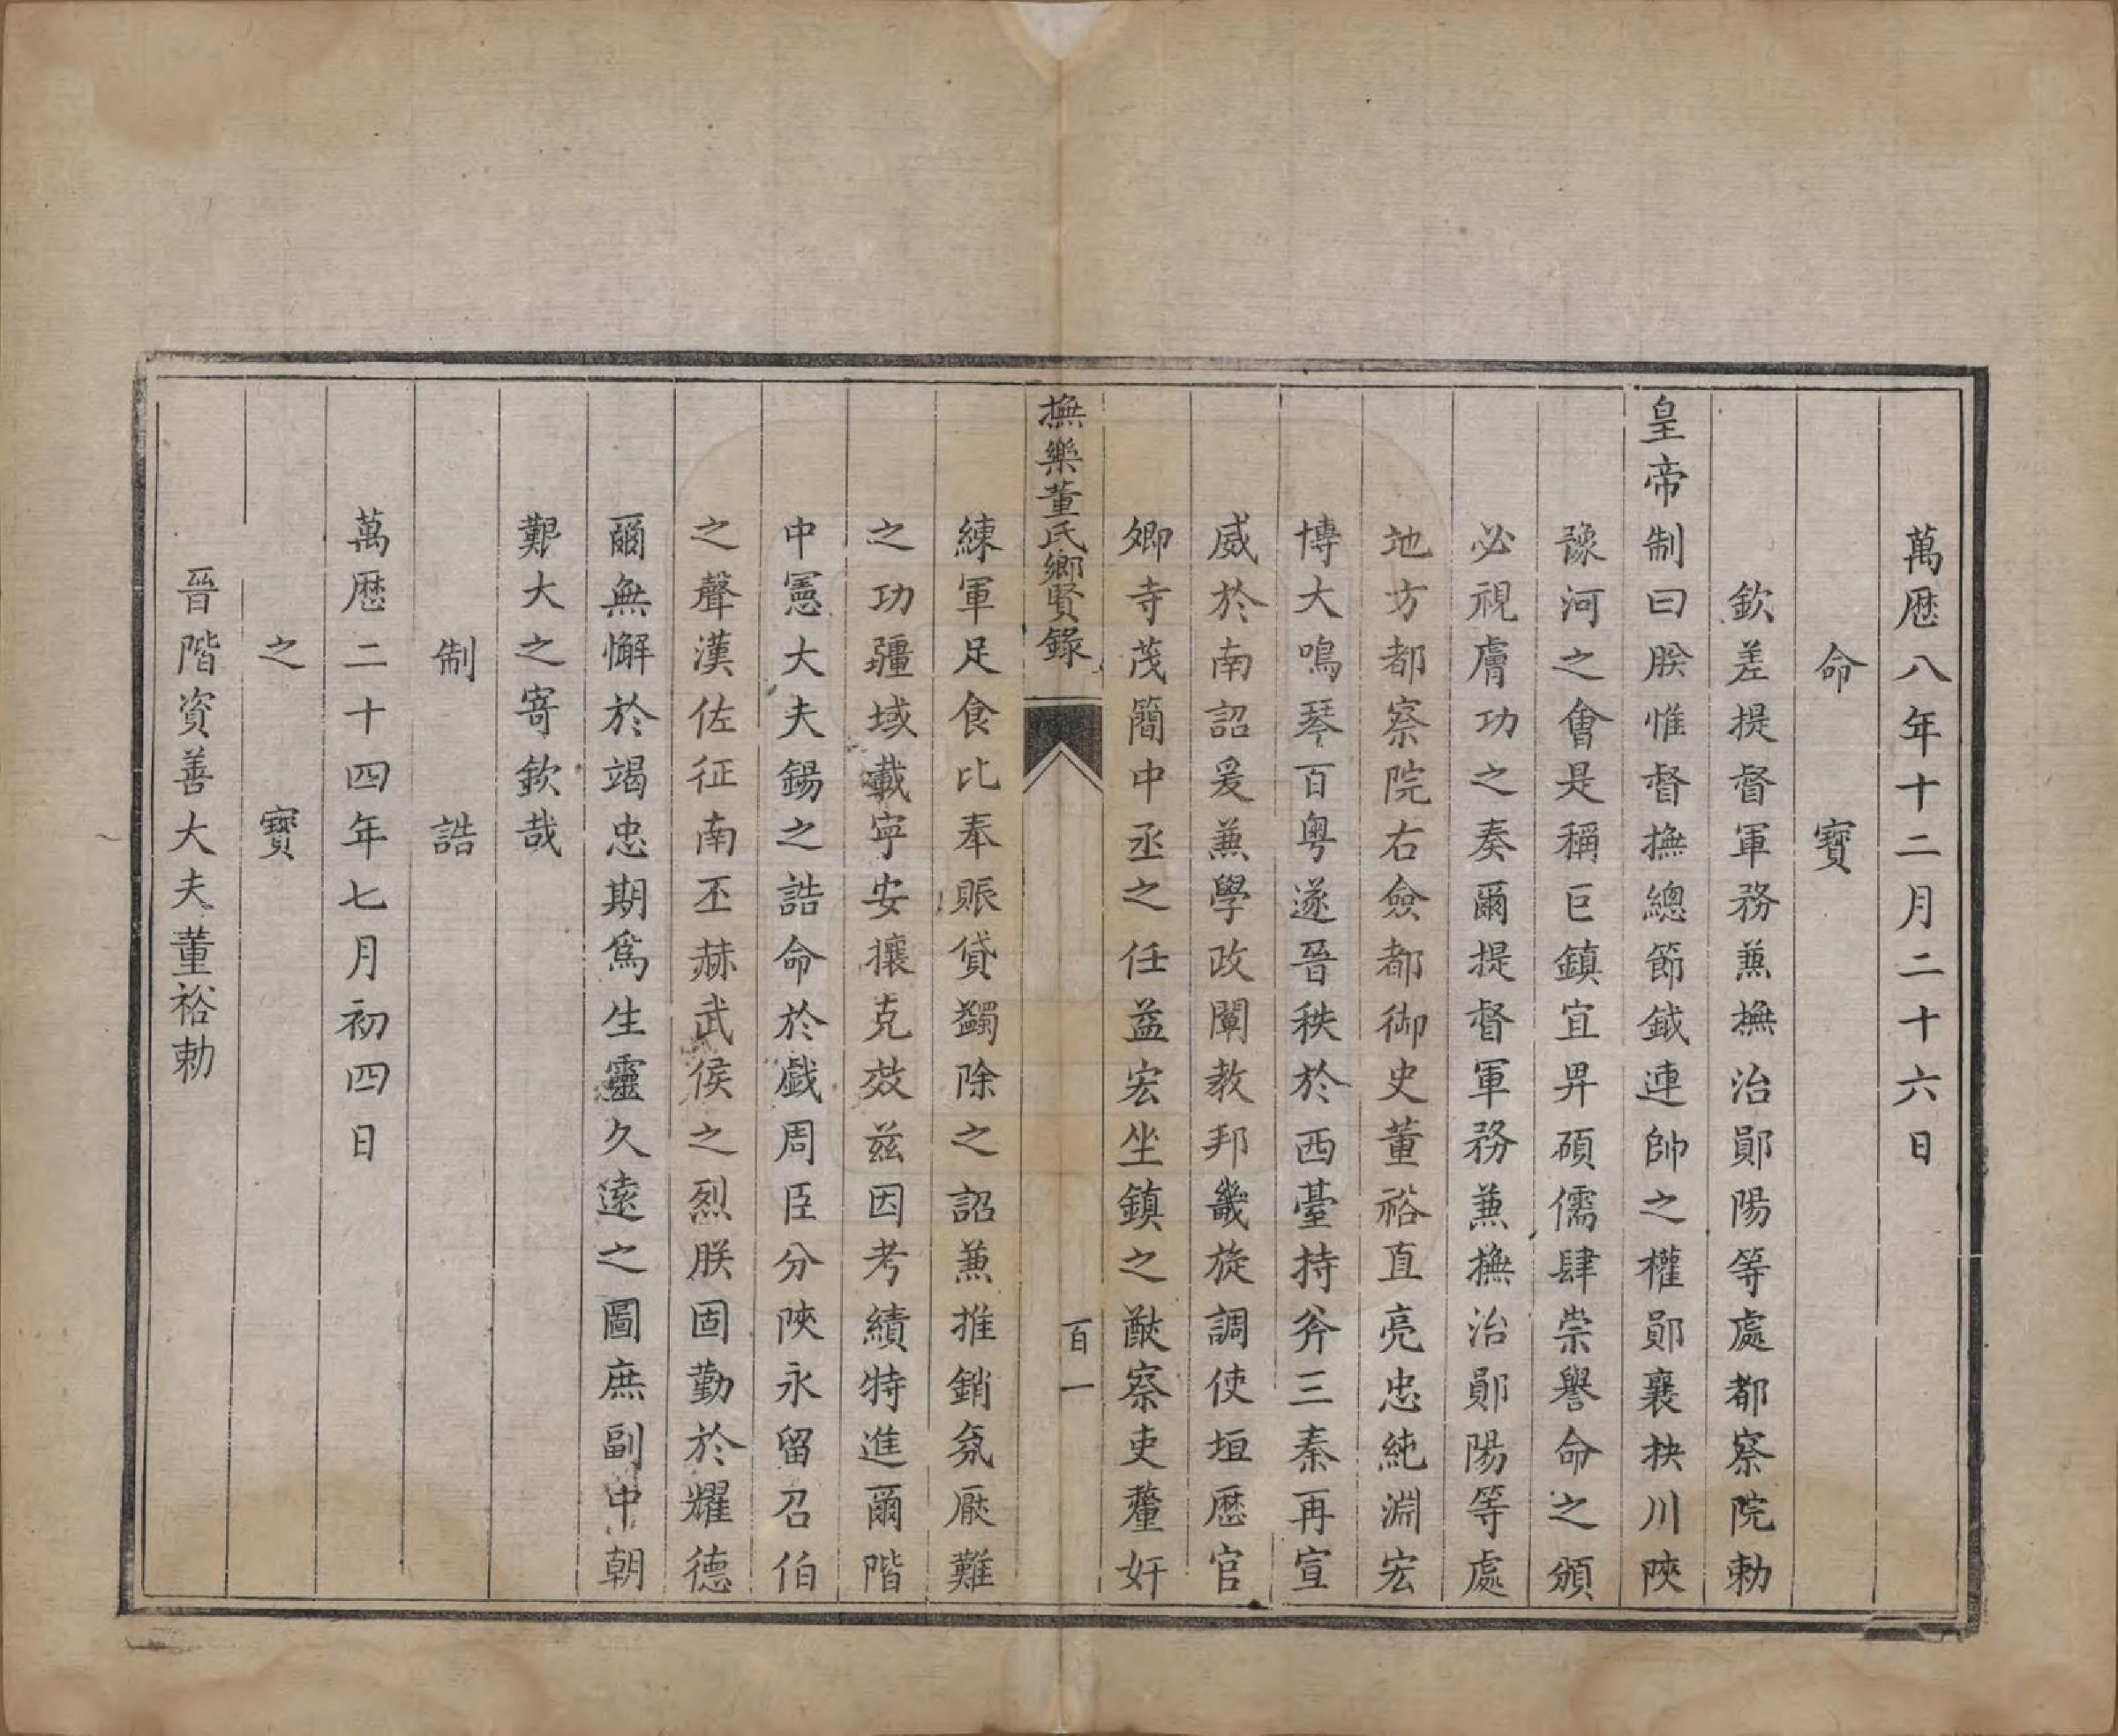 萬歴八年十二月二十六日
命寶
欽差提督軍務兼撫治鄖陽等處都察院勅
皇帝制曰朕惟督撫總節鉞連帥之權鄖襄抉川陝
豫河之會是稱巨鎮宜畀碩儒肆崇譽命之頒
必視膚功之奏爾提督軍務兼撫治鄖陽等處
地方都察院右僉都御史董裕直亮忠純淵宏
博大鳴琴百粤遂晉秩於西臺持斧三秦再宣
威於南詔爰兼學政闡教邦畿旋調使垣歴官
卿寺茂簡中丞之任益宏坐鎮之猷察吏釐奸
撫樂董氏鄉賢錄
百一
練軍足食比奉賑貸蠲除之詔兼推銷氛厭難
之功疆域載寧安攘克效茲因考績特進爾階
中憲大夫錫之誥命於戲周臣分陝永留召伯
之聲漢佐征南丕赫武侯之烈朕固勤於耀德
爾無懈於竭忠期爲生靈久遠之圖庶副中朝
艱大之寄欽哉
制誥
萬歴二十四年七月初四日
之寶
晉階資善大夫董裕勅